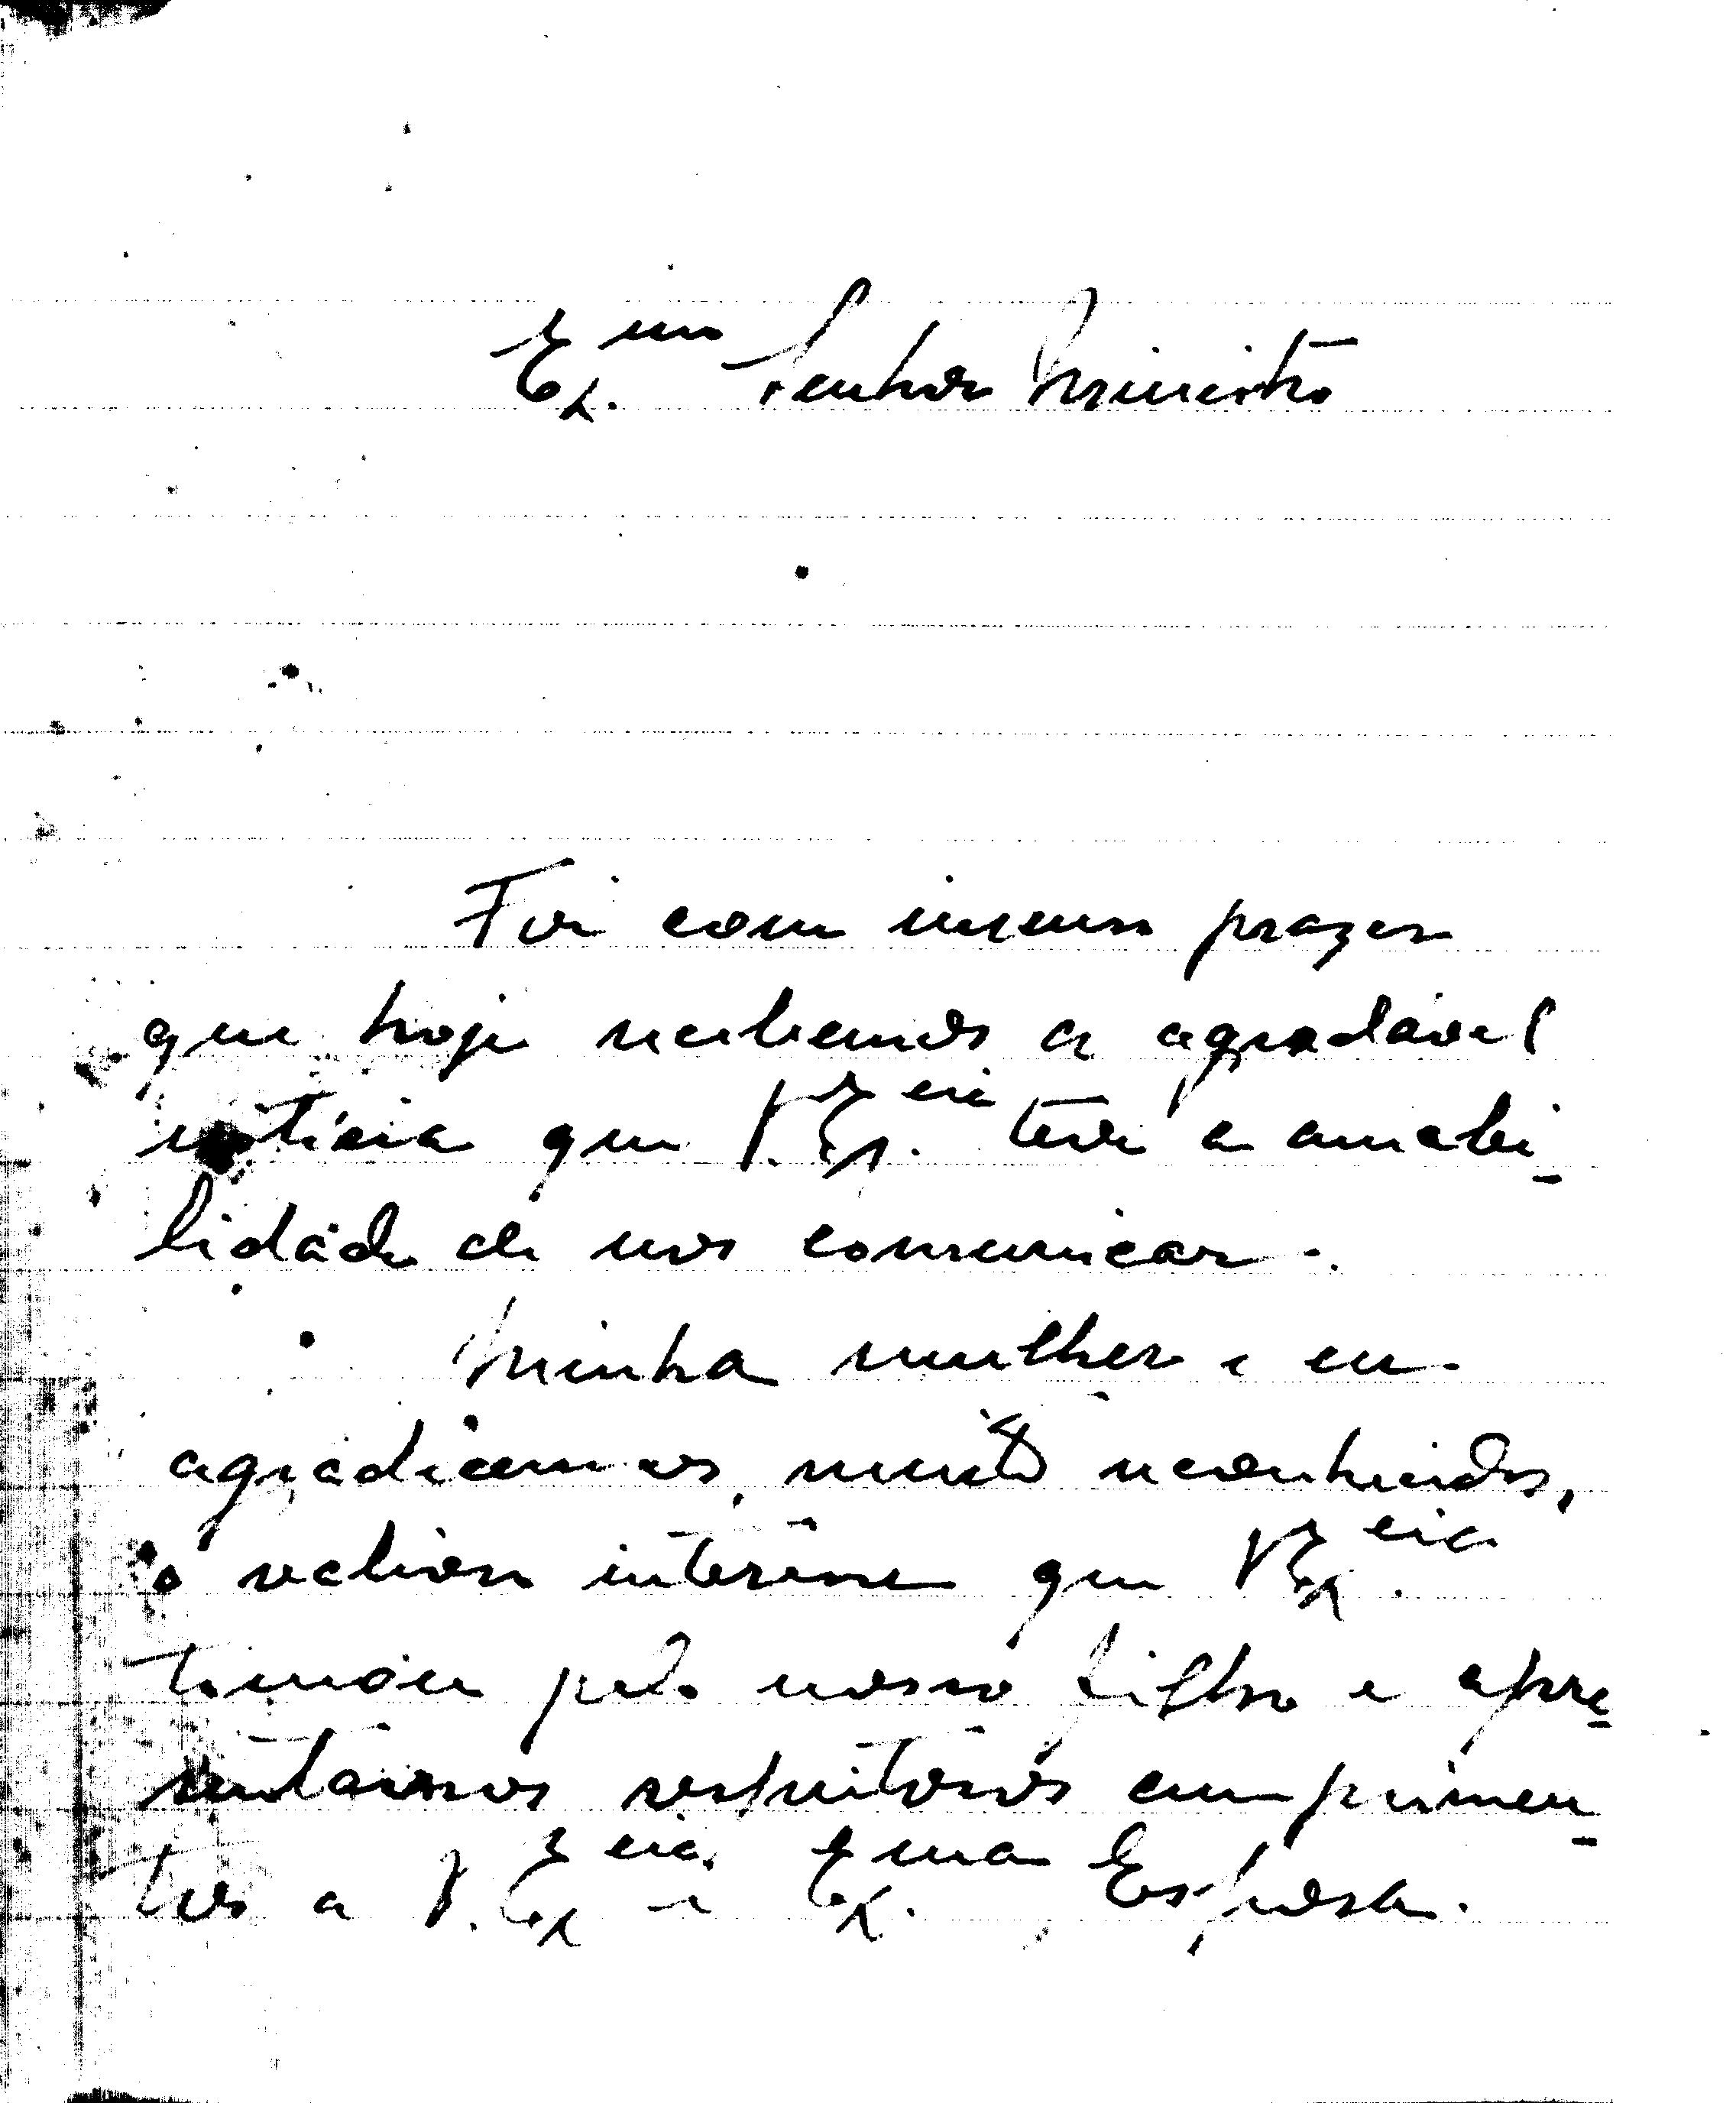 Ex.mo Senhor Ministro
Foi com imenso prazer
que hoje recebemos a agradável
notícia que V. Ex.cia teve a amabi-
lidade de nos comunicar.
Minha mulher e eu
agradecemos, muito reconhecidos,
o valioso interêsse que V. Ex.cia
tomou pelo nosso filho e apre-
sentamos respeitosos cumprimen-
tos a V. Ex.cia e Ex.ma Esposa.